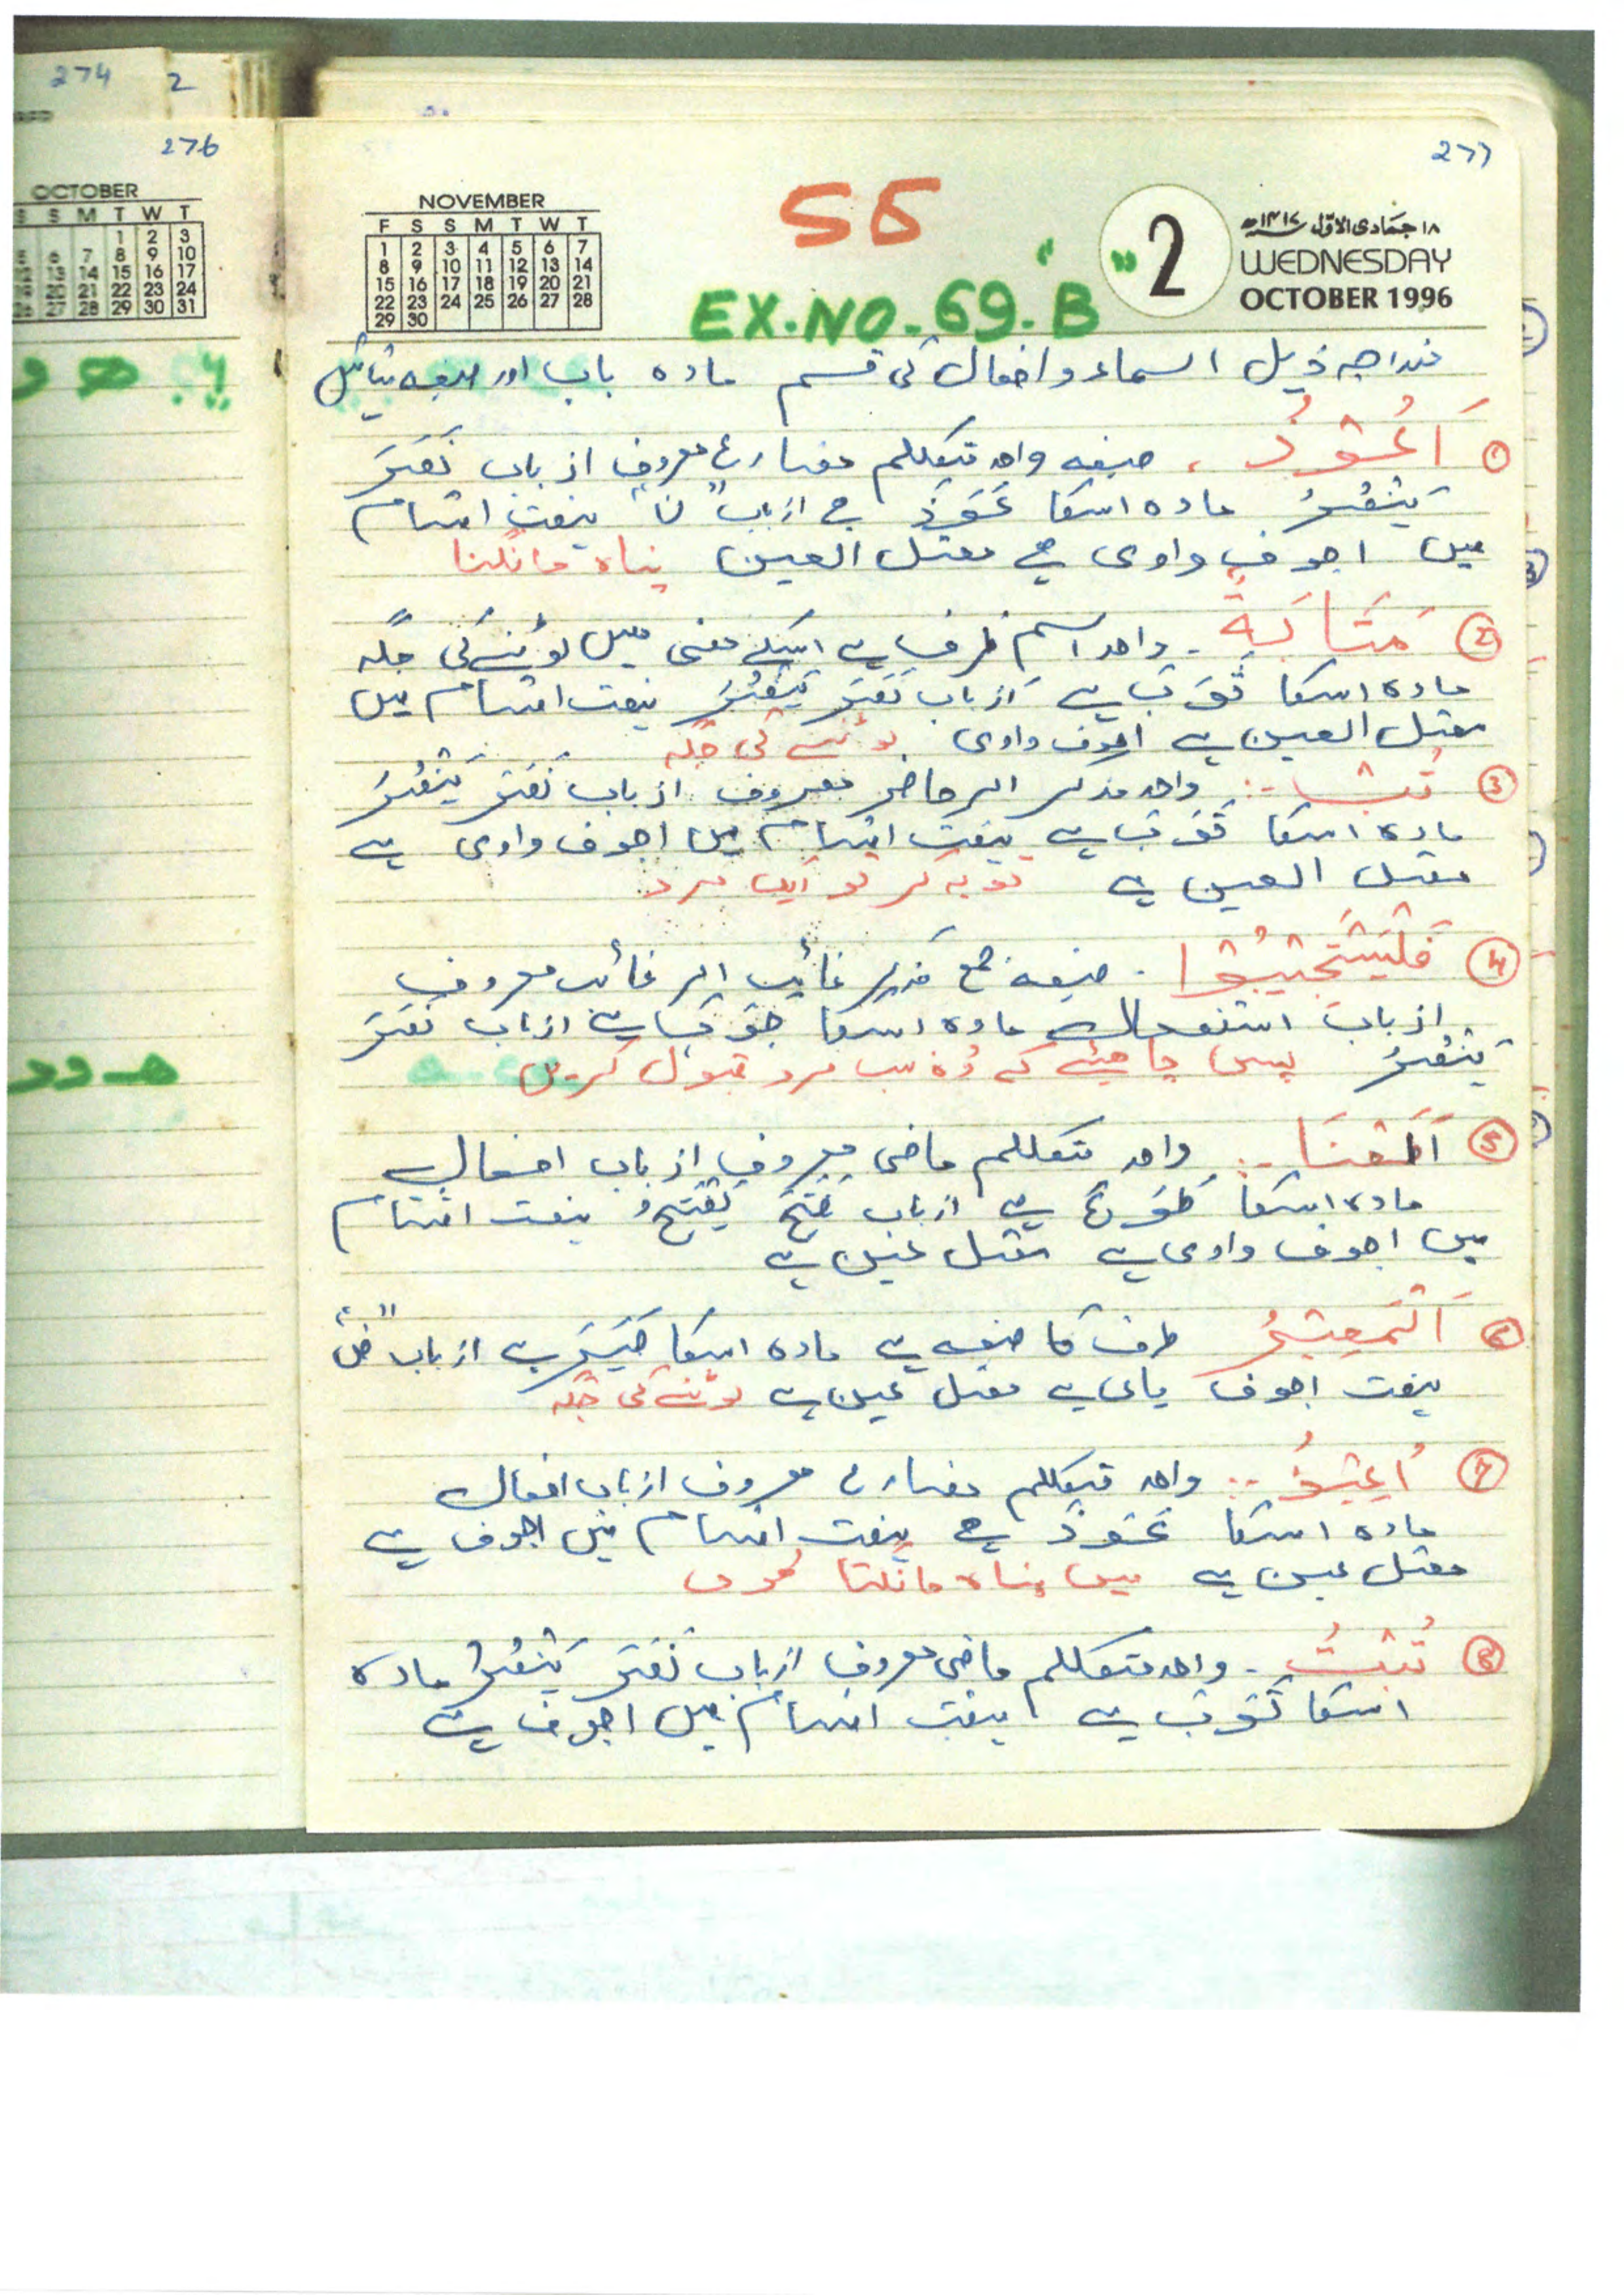 274 2
276
OCTOBER
S S M T W T
1 2 3
5 6 7 8 9 10
12 13 14 15 16 17
19 20 21 22 23 24
26 27 28 29 30 31
277
NOVEMBER
F S S M T W T
1 2 3 4 5 6 7
8 9 10 11 12 13 14
15 16 17 18 19 20 21
22 23 24 25 26 27 28
29 30
55
EX.NO.69.B
"2"
۱۸ جمادی الاوّل ۱۴۱۷ھ
WEDNESDAY
OCTOBER 1996
منداجہ ذیل اسماء و افعال کی قسم مادہ باب اور صیغہ بتائیں
① اَعُوْذُ ، صیغہ واحد متکلم مضارع معروف از باب نَصَرَ
یَنْصُرُ مادہ اسکا عَوَذَ ہے از باب "ن" ہفت اقسام
میں اجوف واوی ہے معتل العین پناہ مانگنا
② مَثَابَةً ۔ واحد اسم ظرف ہے اسکے معنی میں لوٹنے کی جگہ
مادہ اسکا ثَوَبَ ہے از باب نَصَرَ یَنْصُرُ ہفت اقسام میں
معتل العین ہے اجوف واوی لوٹنے کی جگہ
③ تُبْ :۔ واحد مذکر امر حاضر معروف از باب نَصَرَ یَنْصُرُ
مادہ اسکا تَوَبَ ہے ہفت اقسام میں اجوف واوی ہے
معتل العین ہے توبہ کر تو ایک مرد
④ فَلْیَسْتَجِیْبُوْا ۔ صیغہ جمع مذکر غائب امر غائب معروف
از باب استفعال مادہ اسکا جَوَبَ ہے از باب نَصَرَ
یَنْصُرُ پس چاہئے کہ وُہ سب مرد قبول کریں
⑤ اَطَعْنَا :۔ واحد متکلم ماضی معروف از باب افعال
مادہ اسکا طَوَعَ ہے از باب فَتَحَ یَفْتَحُ ہفت اقسام
میں اجوف واوی ہے معتل عین ہے
⑥ اَلْمَصِیْرُ ظرف کا صیغہ ہے مادہ اسکا صَیَرَ ہے از باب "ض"
ہفت اجوف یائی ہے معتل عین ہے لوٹنے کی جگہ
⑦ اُعِیْذُ :۔ واحد متکلم مضارع معروف از باب افعال
مادہ اسکا عَوَذَ ہے ہفت اقسام میں اجوف ہے
معتل عین ہے میں پناہ مانگتا ہوں
⑧ تُبْتُ ۔ واحد متکلم ماضی معروف از باب نَصَرَ یَنْصُرُ مادہ
اسکا تَوَبَ ہے ہفت اقسام میں اجوف ہے